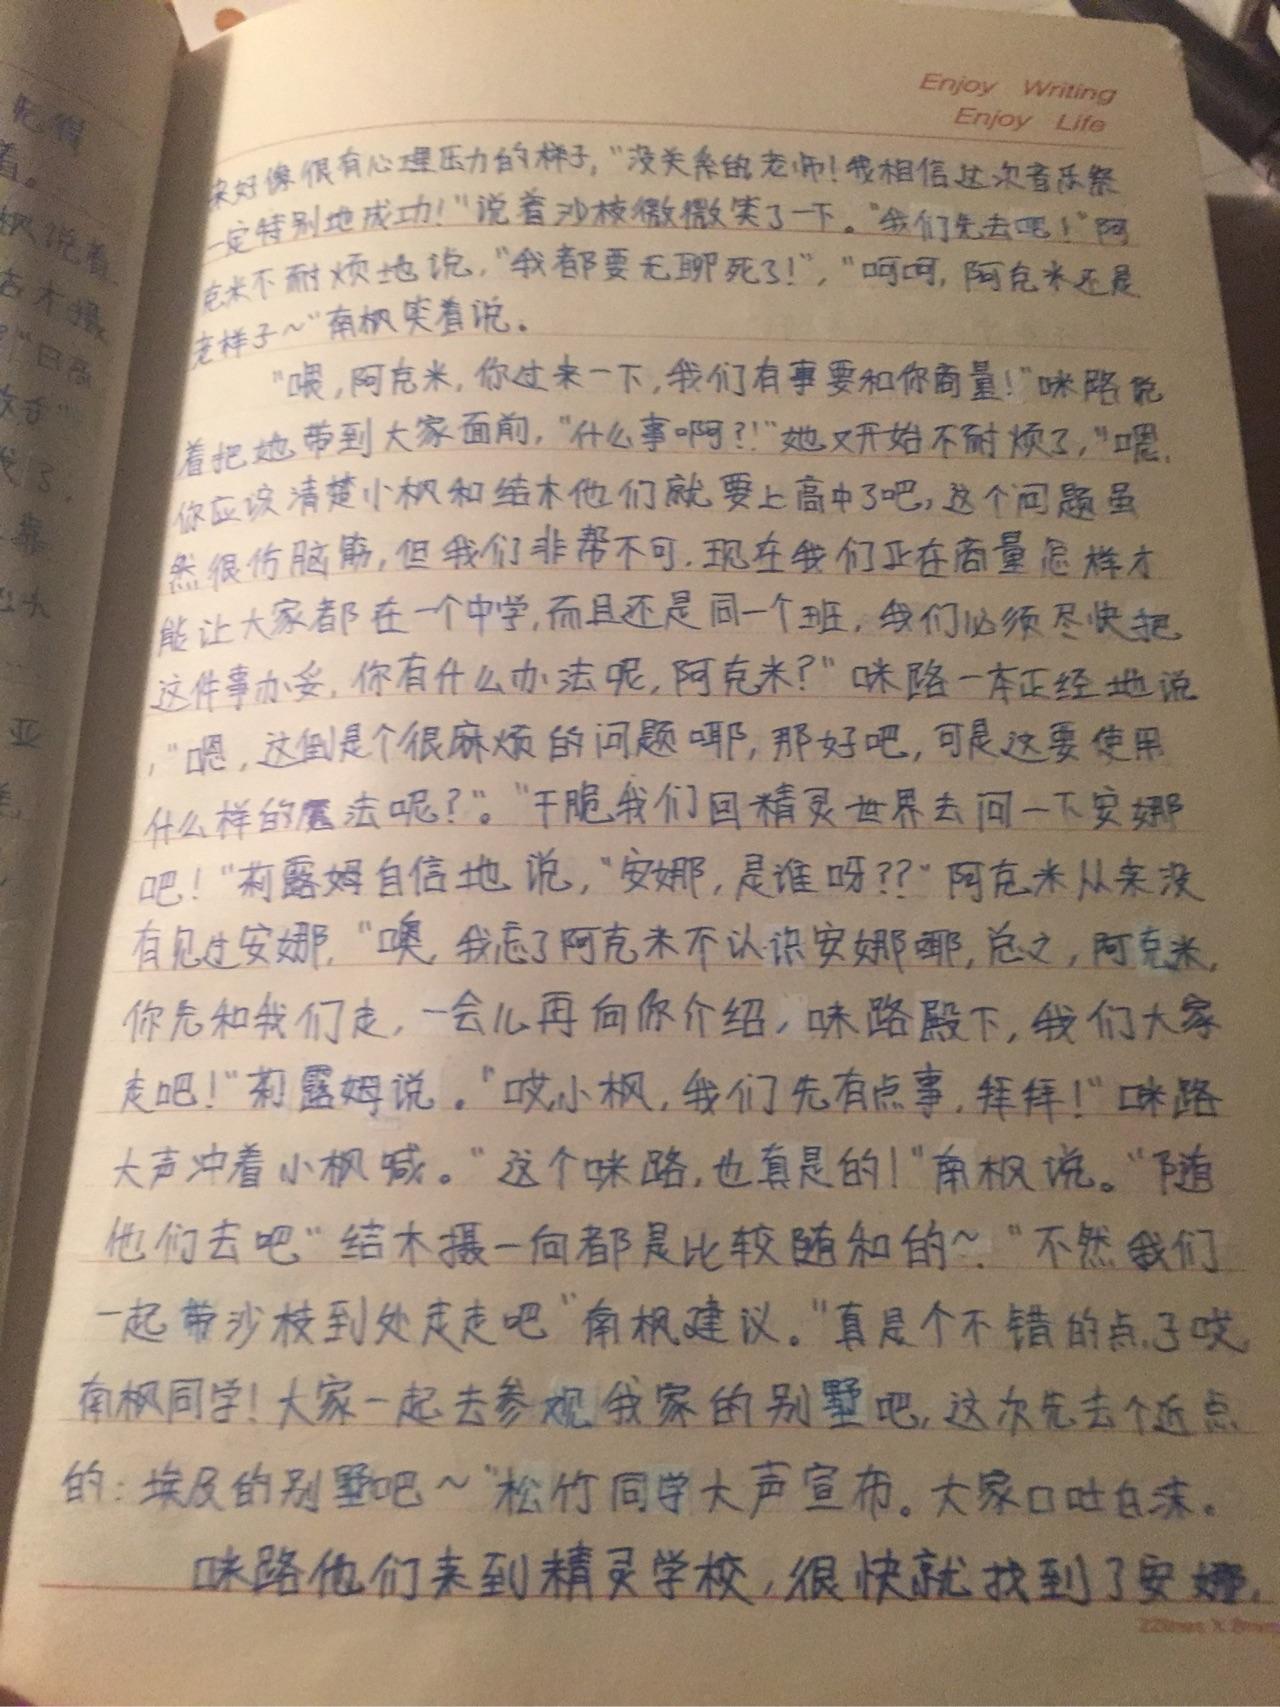 Enjoy Writing
Enjoy Life
来好像很有心理压力的样子，“没关系的老师！我相信这次音乐祭
一定特别地成功！”说着沙枝微微笑了一下。“我们先去吧！”阿
克米不耐烦地说，“我都要无聊死了！”，“呵呵，阿克米还是
老样子～”南枫笑着说。
“喂，阿克米，你过来一下，我们有事要和你商量！”咪路说
着把她带到大家面前，“什么事啊？！”她又开始不耐烦了，“嗯，
你应该清楚小枫和结木他们就要上高中了吧，这个问题虽
然很伤脑筋，但我们非帮不可，现在我们正在商量怎样才
能让大家都在一个中学，而且还是同一个班，我们必须尽快把
这件事办妥，你有什么办法呢，阿克米？”咪路一本正经地说
，“嗯，这倒是个很麻烦的问题耶，那好吧，可是这要使用
什么样的魔法呢？”。“干脆我们回精灵世界去问一下安娜
吧！”莉露姆自信地说，“安娜，是谁呀？？”阿克米从来没
有见过安娜，“噢，我忘了阿克米不认识安娜耶，总之，阿克米，
你先和我们走，一会儿再向你介绍，咪路殿下，我们大家
走吧！”莉露姆说。“哎小枫，我们先有点事，拜拜！”咪路
大声冲着小枫喊。“这个咪路，也真是的！”南枫说。“随
他们去吧”结木摄一向都是比较随和的～“不然我们
一起带沙枝到处走走吧”南枫建议。“真是个不错的点子哎，
南枫同学！大家一起去参观我家的别墅吧，这次先去个近点
的：埃及的别墅吧～”松竹同学大声宣布。大家口吐白沫。
咪路他们来到精灵学校，很快就找到了安娜，